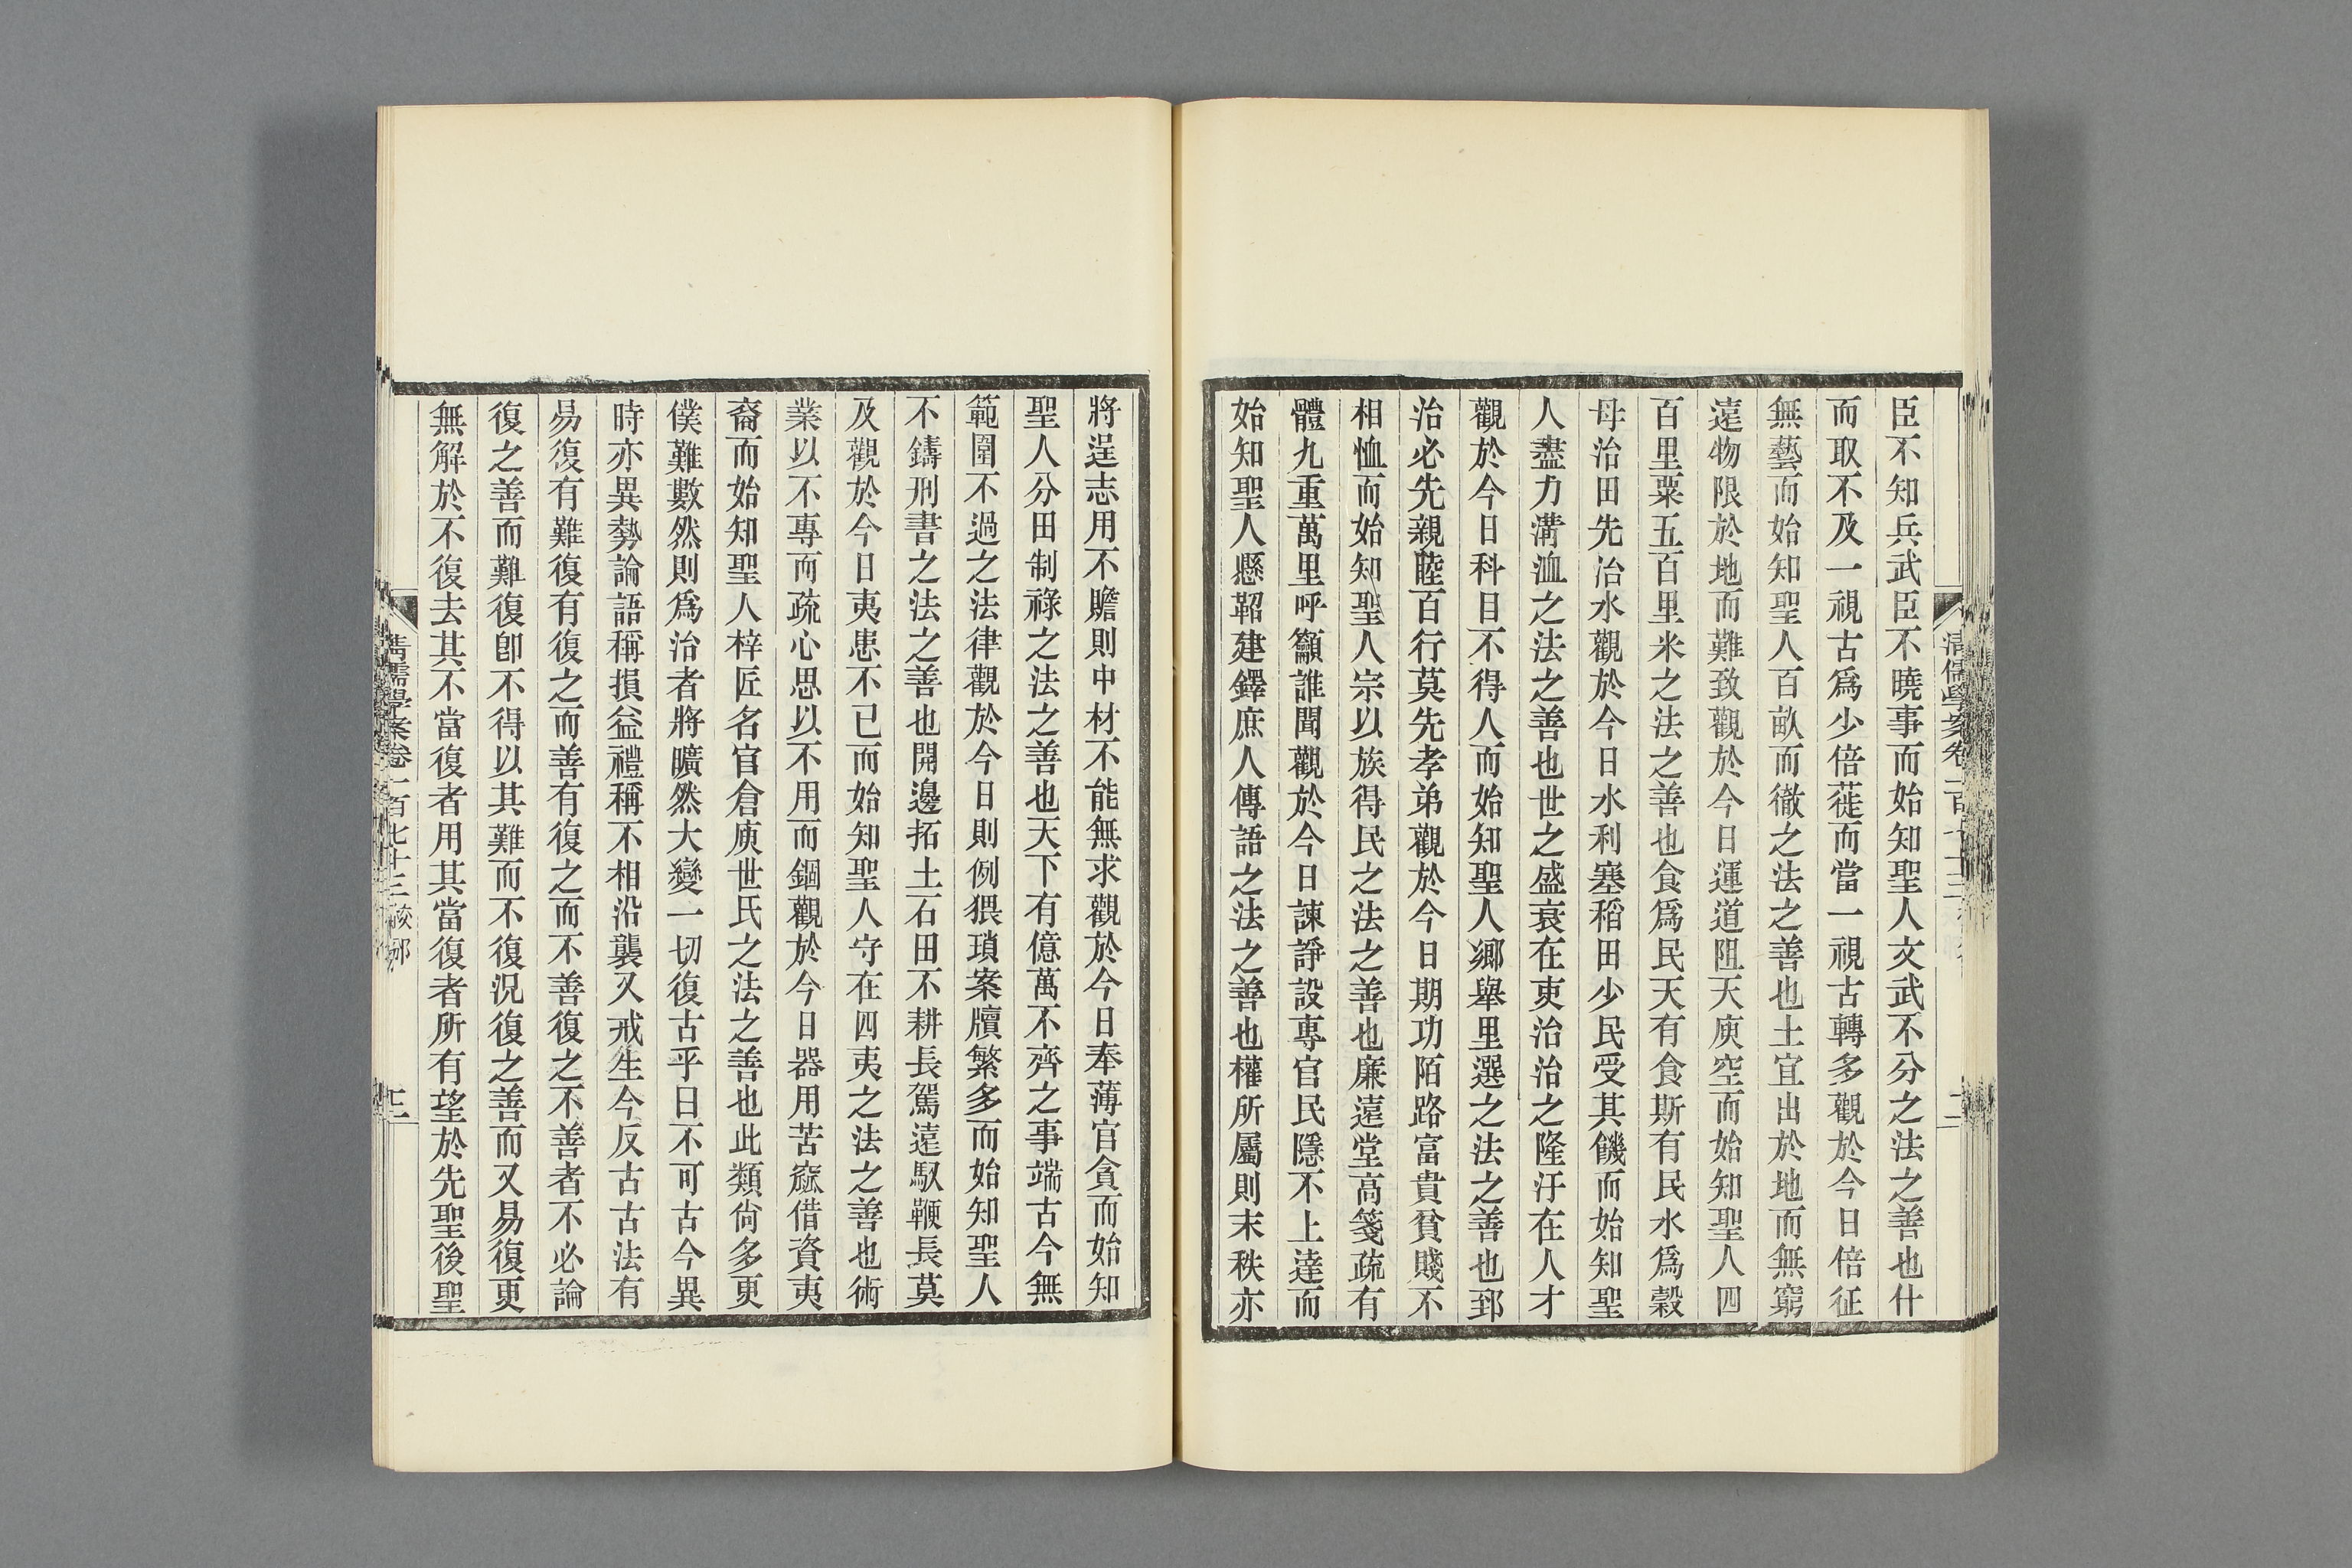 臣不知兵武臣不曉事而始知聖人文武不分之法之善也什
而取不及一視古爲少倍蓰而當一視古轉多觀於今日倍征
無藝而始知聖人百畝而徹之法之善也土宜出於地而無窮
遠物限於地而難致觀於今日運道阻天庾空而始知聖人四
百里粟五百里米之法之善也食爲民天有食斯有民水爲穀
母治田先治水觀於今日水利塞稻田少民受其饑而始知聖
人盡力溝洫之法之善也世之盛衰在吏治治之隆汙在人才
觀於今日科目不得人而始知聖人鄉舉里選之法之善也郅
治必先親睦百行莫先孝弟觀於今日期功陌路富貴貧賤不
相恤而始知聖人宗以族得民之法之善也廉遠堂高箋疏有
體九重萬里呼籲誰聞觀於今日諫諍設專官民隱不上達而
始知聖人懸鞀建鐸庶人傳語之法之善也權所屬則末秩亦
將逞志用不贍則中材不能無求觀於今日奉薄官貪而始知
聖人分田制祿之法之善也天下有億萬不齊之事端古今無
範圍不過之法律觀於今日則例猥瑣案牘繁多而始知聖人
不鑄刑書之法之善也開邊拓土石田不耕長駕遠馭鞭長莫
及觀於今日夷患不已而始知聖人守在四夷之法之善也術
業以不專而疏心思以不用而錮觀於今日器用苦窳借資夷
裔而始知聖人梓匠名官倉庾世氏之法之善也此類尙多更
僕難數然則爲治者將曠然大變一切復古乎曰不可古今異
時亦異勢論語稱損益禮稱不相沿襲又戒生今反古古法有
易復有難復有復之而善有復之而不善復之不善者不必論
復之善而難復卽不得以其難而不復況復之善而又易復更
無解於不復去其不當復者用其當復者所有望於先聖後聖
清儒學案卷一百七十三